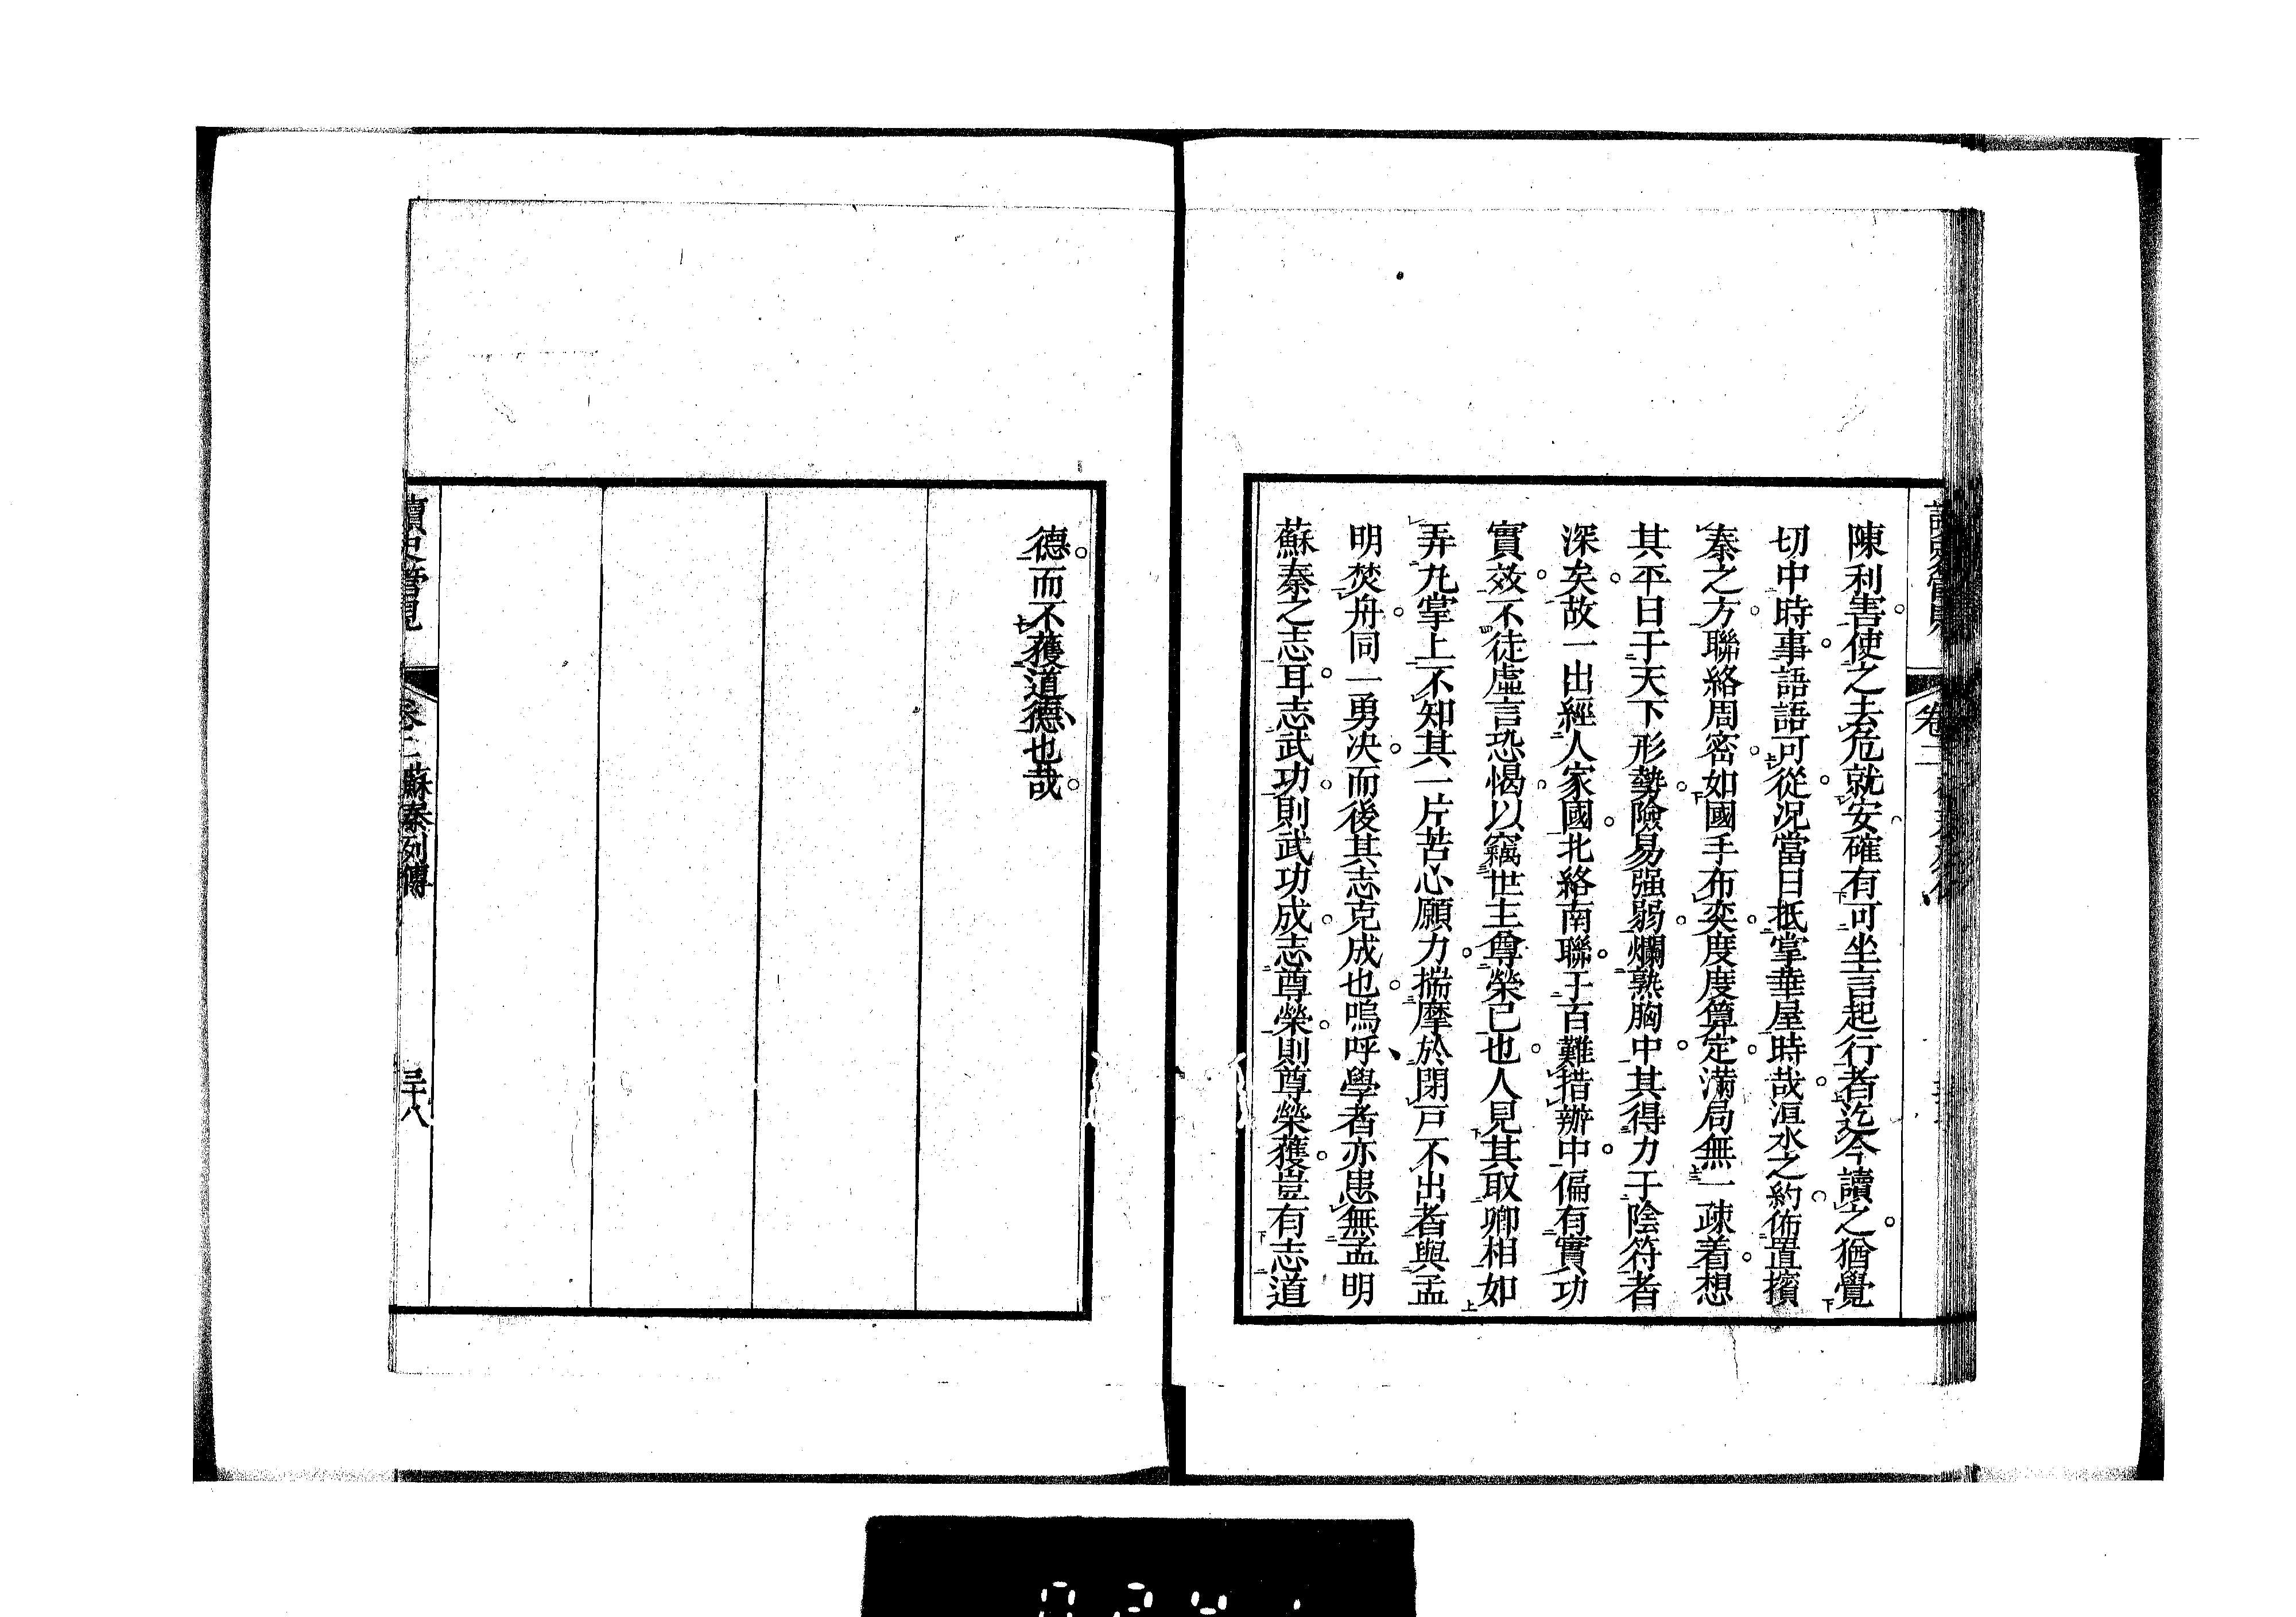 卷二
陳利害使之去危就安確有可坐言起行者迄今讀之猶覺
切中時事語語可從況當日抵掌華屋時哉洹水之約佈置擯
秦之方聯絡周密如國手布奕度度算定滿局無一疎着想
其平日于天下形勢險易强弱爛熟胸中其得力于陰符者
深矣故一出經人家國北絡南聯于百難措辦中偏有實功
實效不徒虛言恐愒以竊世主尊榮已也人見其取卿相如
弄丸掌上不知其一片苦心願力揣摩於閉戸不出者與孟
明焚舟同一勇决而後其志克成也嗚呼學者亦患無孟明
蘇秦之志耳志武功則武功成志尊榮則尊榮獲豈有志道
德而不獲道德也哉
讀史管見
卷二
蘇秦列傳
三十八